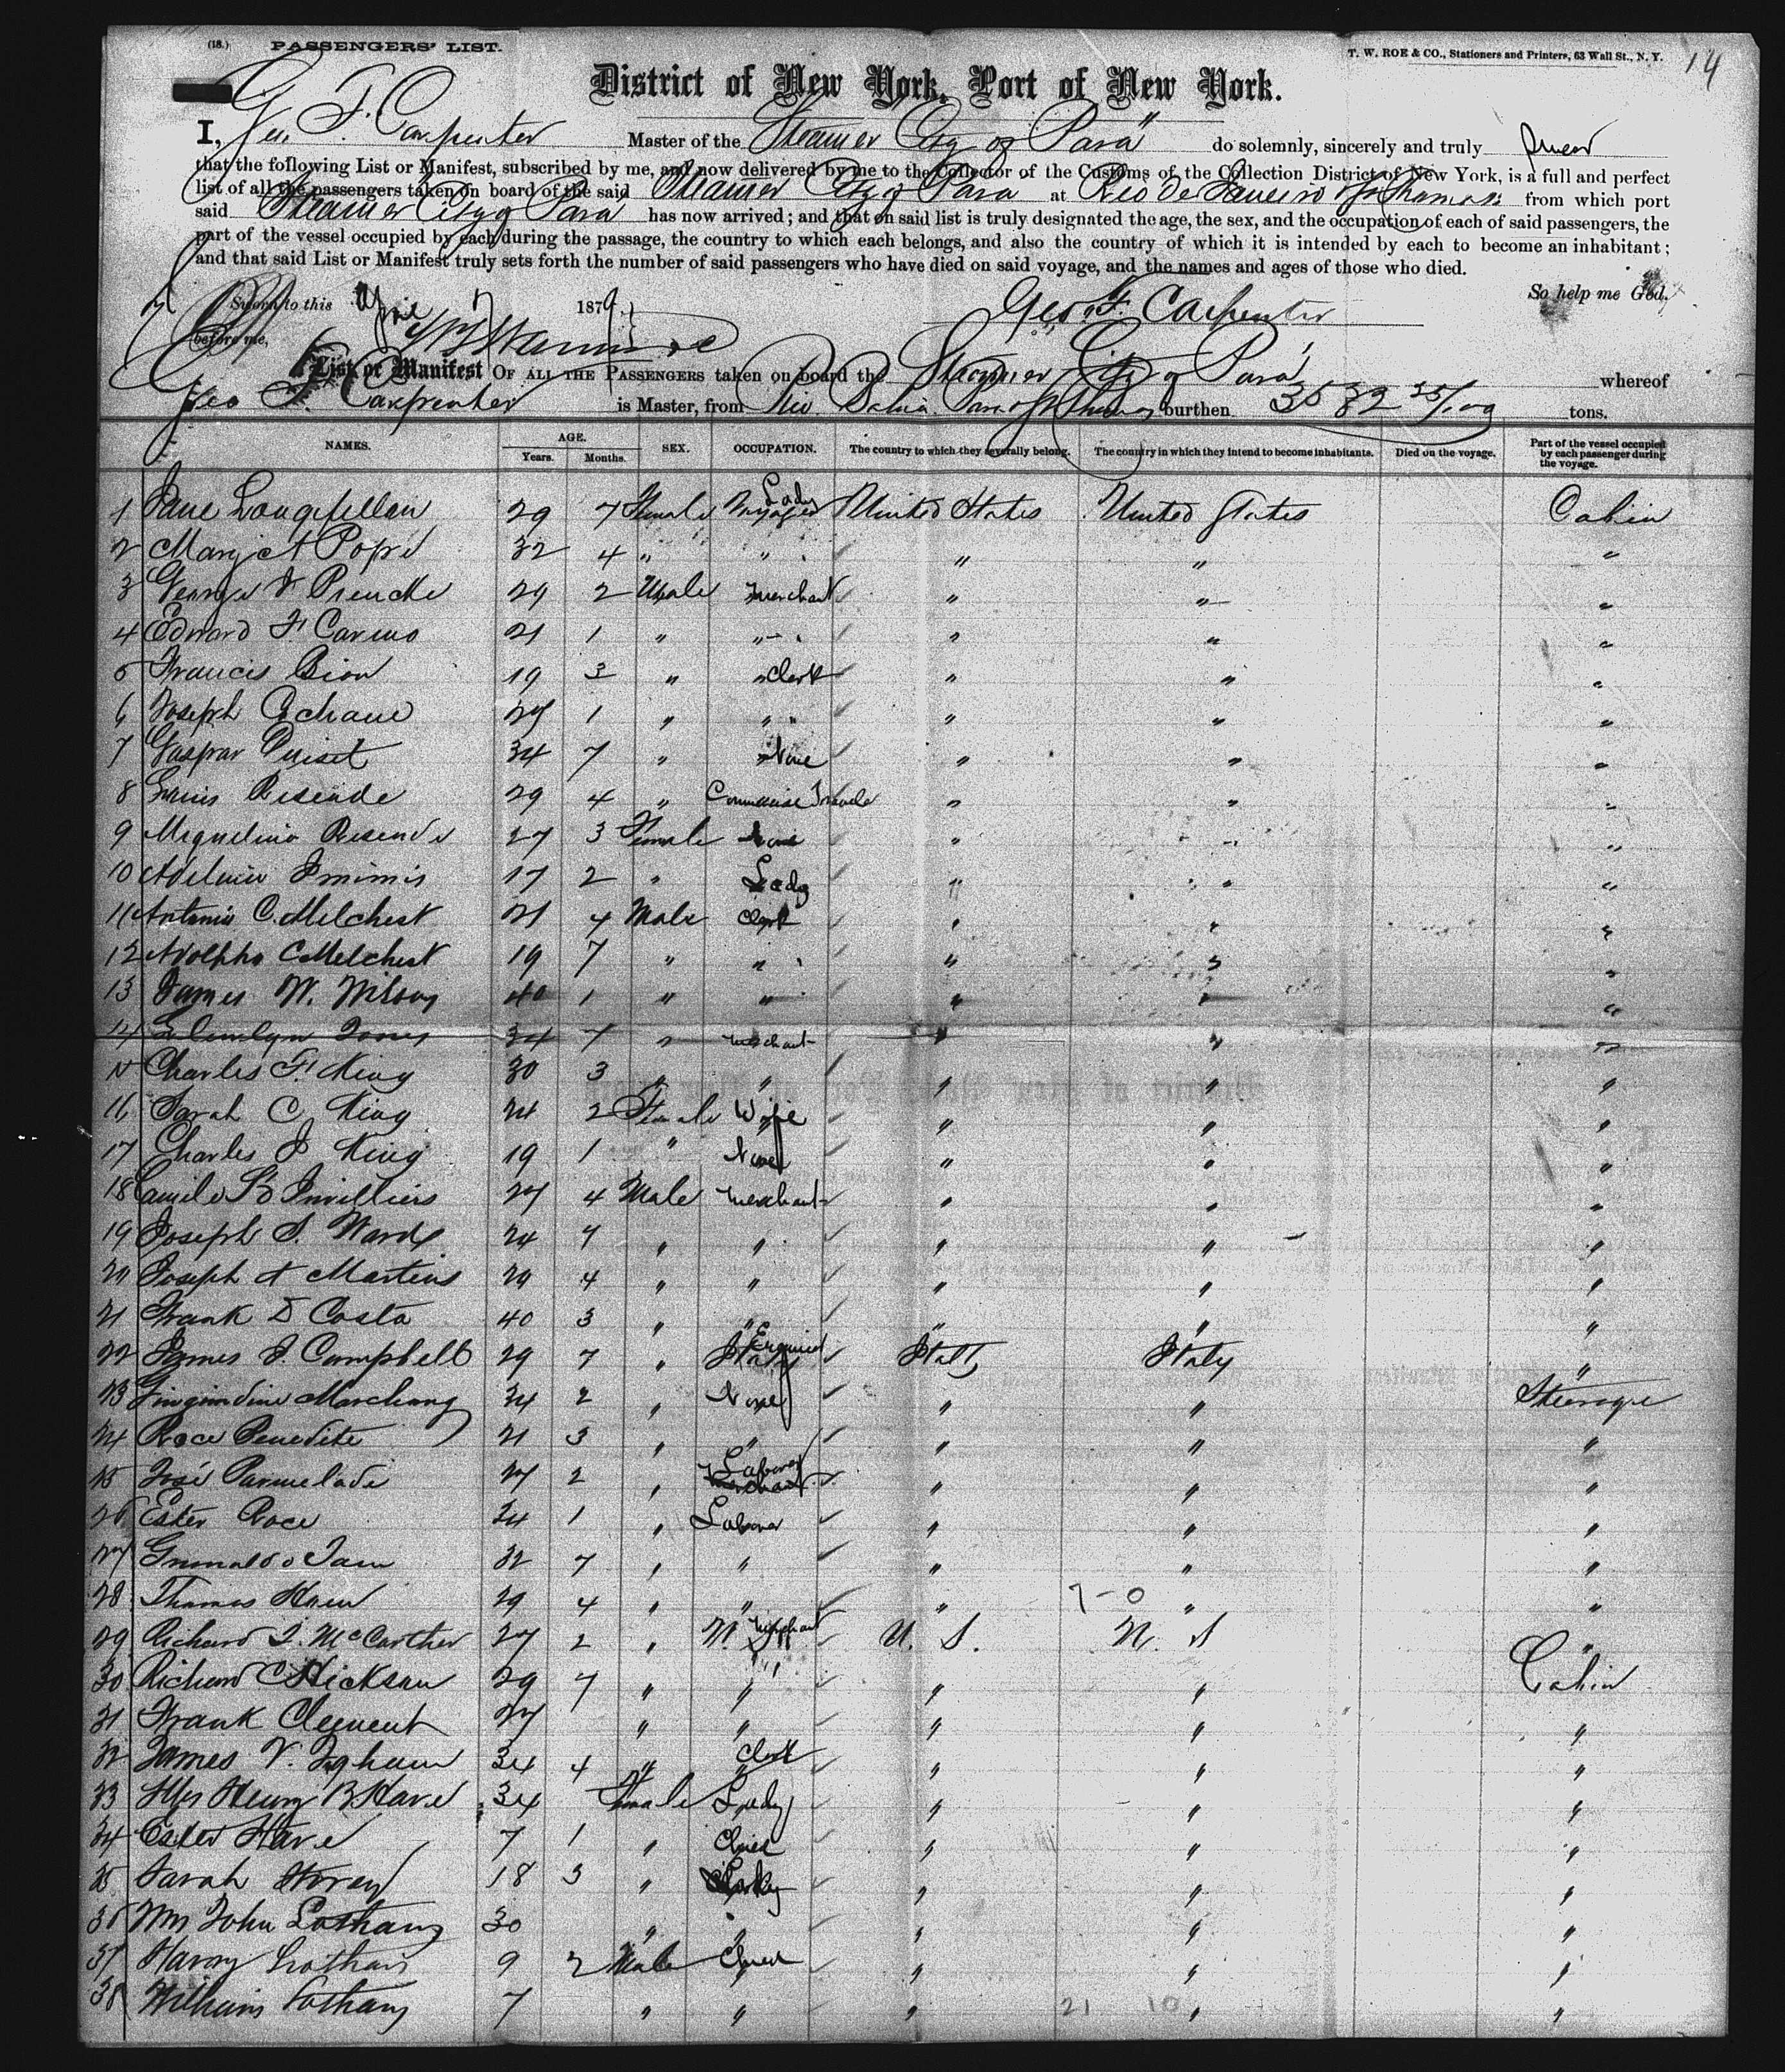 (18.) PASSENGERS' LIST.
T. W. ROE & CO., Stationers and Printers, 63 Wall St., N. Y.
14
District of New York, Port of New York.
I, Geo. F. Carpenter Master of the Steamer City of Para" do solemnly, sincerely and truly swear
that the following List or Manifest, subscribed by me, and now delivered by me to the Collector of the Customs of the Collection District of New York, is a full and perfect
list of all the passengers taken on board of the said Steamer City of Para at Rio de Janeiro St Thomas from which port
said Steamer City of Para has now arrived; and that on said list is truly designated the age, the sex, and the occupation of each of said passengers, the
part of the vessel occupied by each during the passage, the country to which each belongs, and also the country of which it is intended by each to become an inhabitant;
and that said List or Manifest truly sets forth the number of said passengers who have died on said voyage, and the names and ages of those who died.
So help me God.
Sworn to this 1879
before me,
Geo. F. Carpenter
List or Manifest OF ALL THE PASSENGERS taken on board the Steamer City of Para whereof
Geo F. Carpenter is Master, from Rio Bahia Para St Thomas burthen 3532 25/100 tons.
NAMES. AGE. Years. Months. SEX. OCCUPATION. The country to which they severally belong. The country in which they intend to become inhabitants. Died on the voyage. Part of the vessel occupied by each passenger during the voyage.
1 Jane Longfellow 29 7 Female Lady United States United States Cabin
2 Mary A Pope 32 4 " " " " "
3 George 29 2 Male Merchant " " "
4 Edward F 21 1 " " " " "
5 Francis Bion 19 3 " Clerk " " "
6 Joseph 27 1 " " " " "
7 Gaspar 34 7 " None " " "
8 Resende 29 4 " " " "
9 Resende 27 3 Female None " " "
10 17 2 " Lady " " "
11 Antonio C. Melchert 21 4 Male Clerk " " "
12 Adolpho C Melchert 19 7 " " " " "
13 James W. Wilson 40 1 " " " " "
14 Jones 34 7 " Merchant " " "
15 Charles F. King 30 3 " " " " "
16 Sarah C King 24 2 Female Wife " " "
17 Charles J King 19 1 " None " " "
18 Camile 27 4 Male Merchant " " "
19 Joseph S. Ward 24 7 " " " " "
20 Joseph A Martins 29 4 " " " " "
21 Frank D Costa 40 3 " " " " "
22 James J. Campbell 29 7 " Italy Italy "
23 34 2 " None " " Steerage
24 Roce Benedite 21 3 " " " " "
25 José 27 2 " Laborer " " "
26 Ester Roce 34 1 " Laborer " " "
27 32 7 " " " " "
28 Thomas 29 4 " " " " "
29 Richard J. McCarther 27 2 " Merchant U. S. U. S "
30 Richard C Hickson 29 7 " " " " Cabin
31 Frank Clement 27 " " " " "
32 James V. 34 4 " Clerk " " "
33 Mrs Henry B Hare 34 Female Lady " " "
34 Ester Hare 7 1 " Child " " "
35 Sarah 18 3 " " " "
36 Mrs John Lothany 30 " " " " "
37 Harry Lothany 9 2 Male Child " " "
38 William Lothany 7 " " " " "
21 10